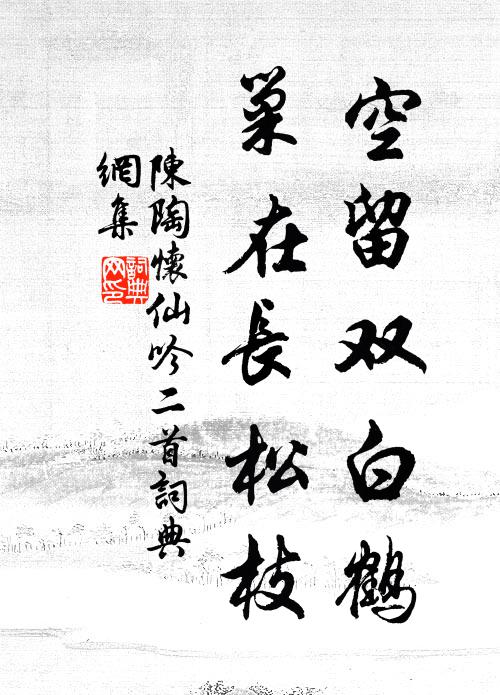 空留双白鶴
巢在長松枝
陳陶懷仙吟二首詞典
網集
詞典
网印